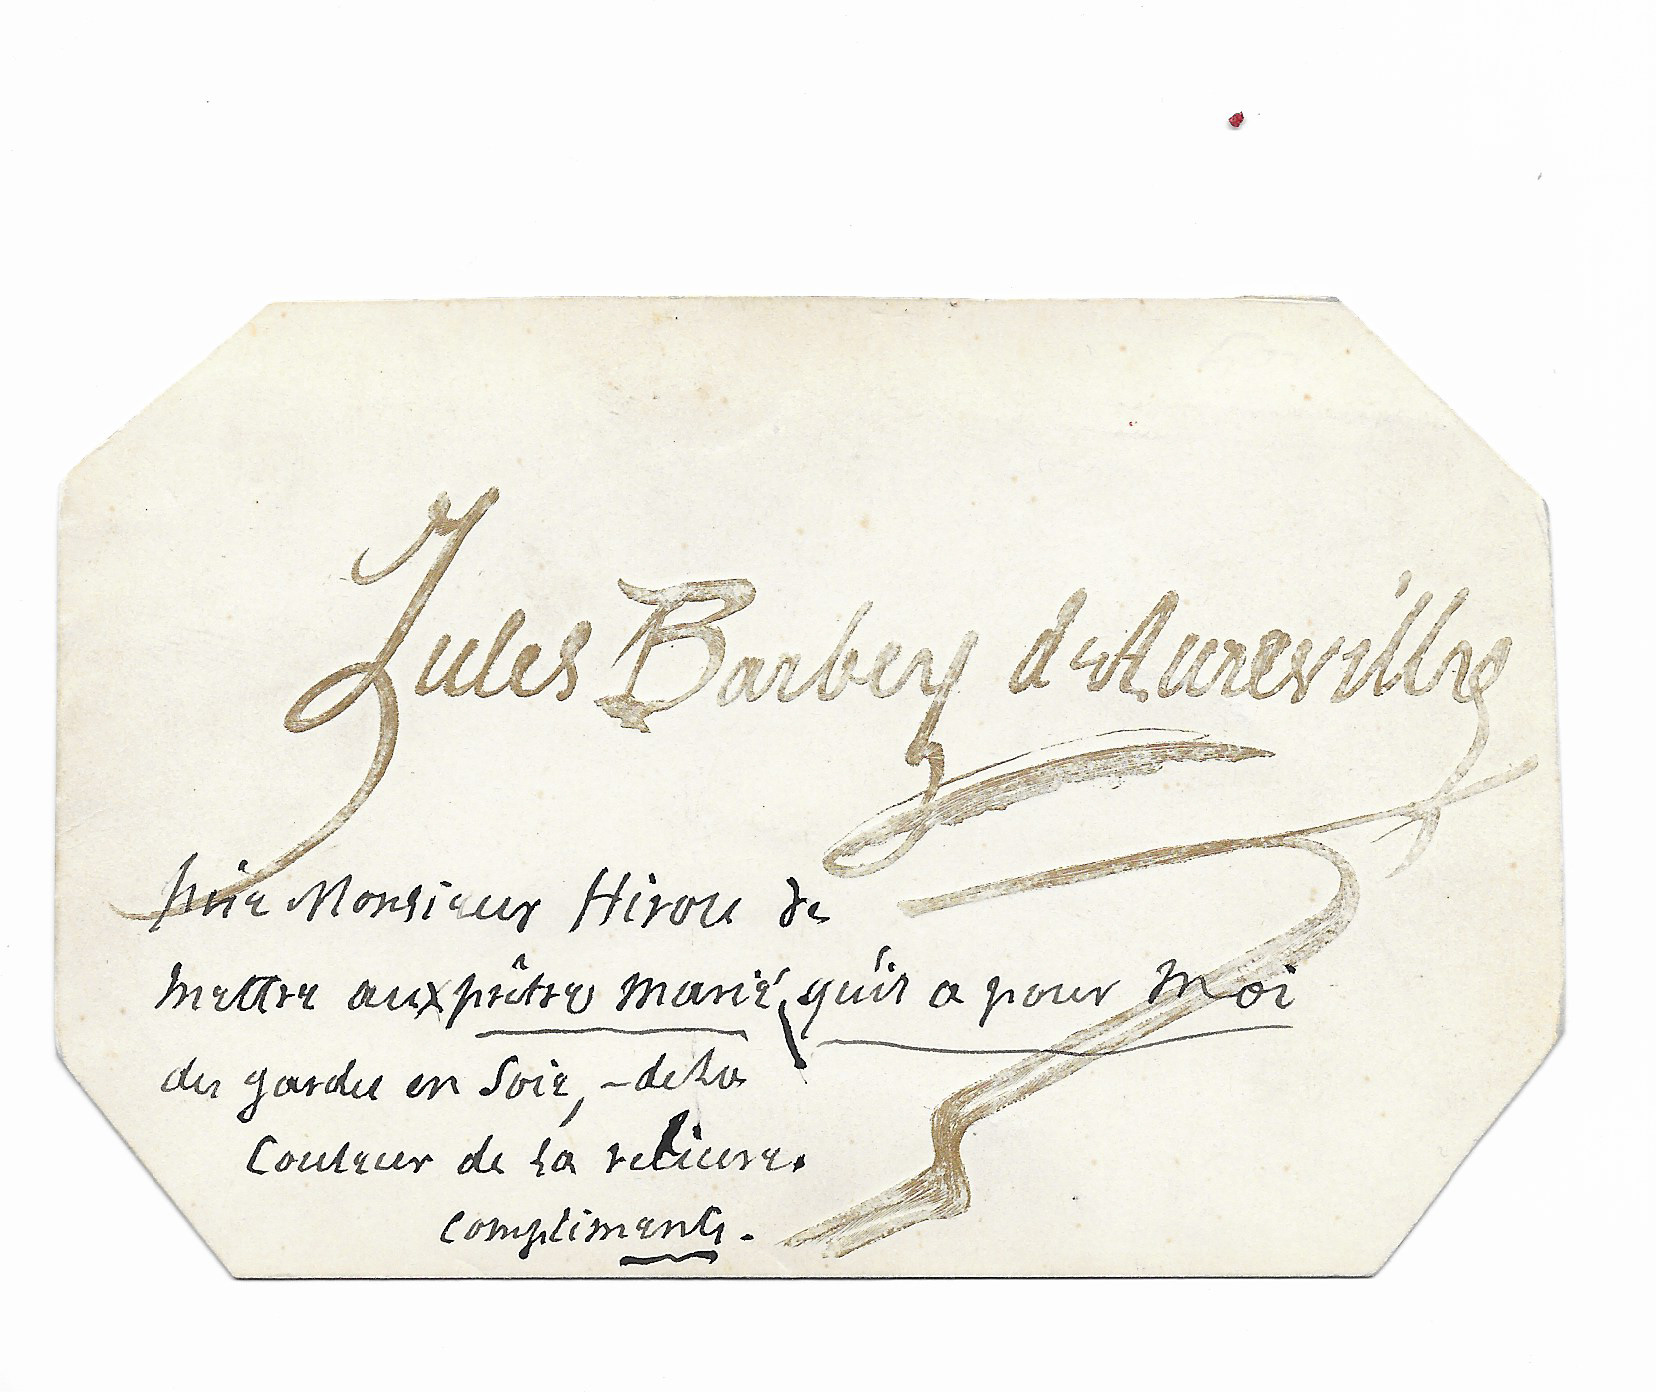 Jules Barbey d'Aurevilly
Prie Monsieur Hirou de
mettre aux prêtre marié, qu'il a pour Moi
des gardes en Soie, – de la
Couleur de la reliure.
Compliments.